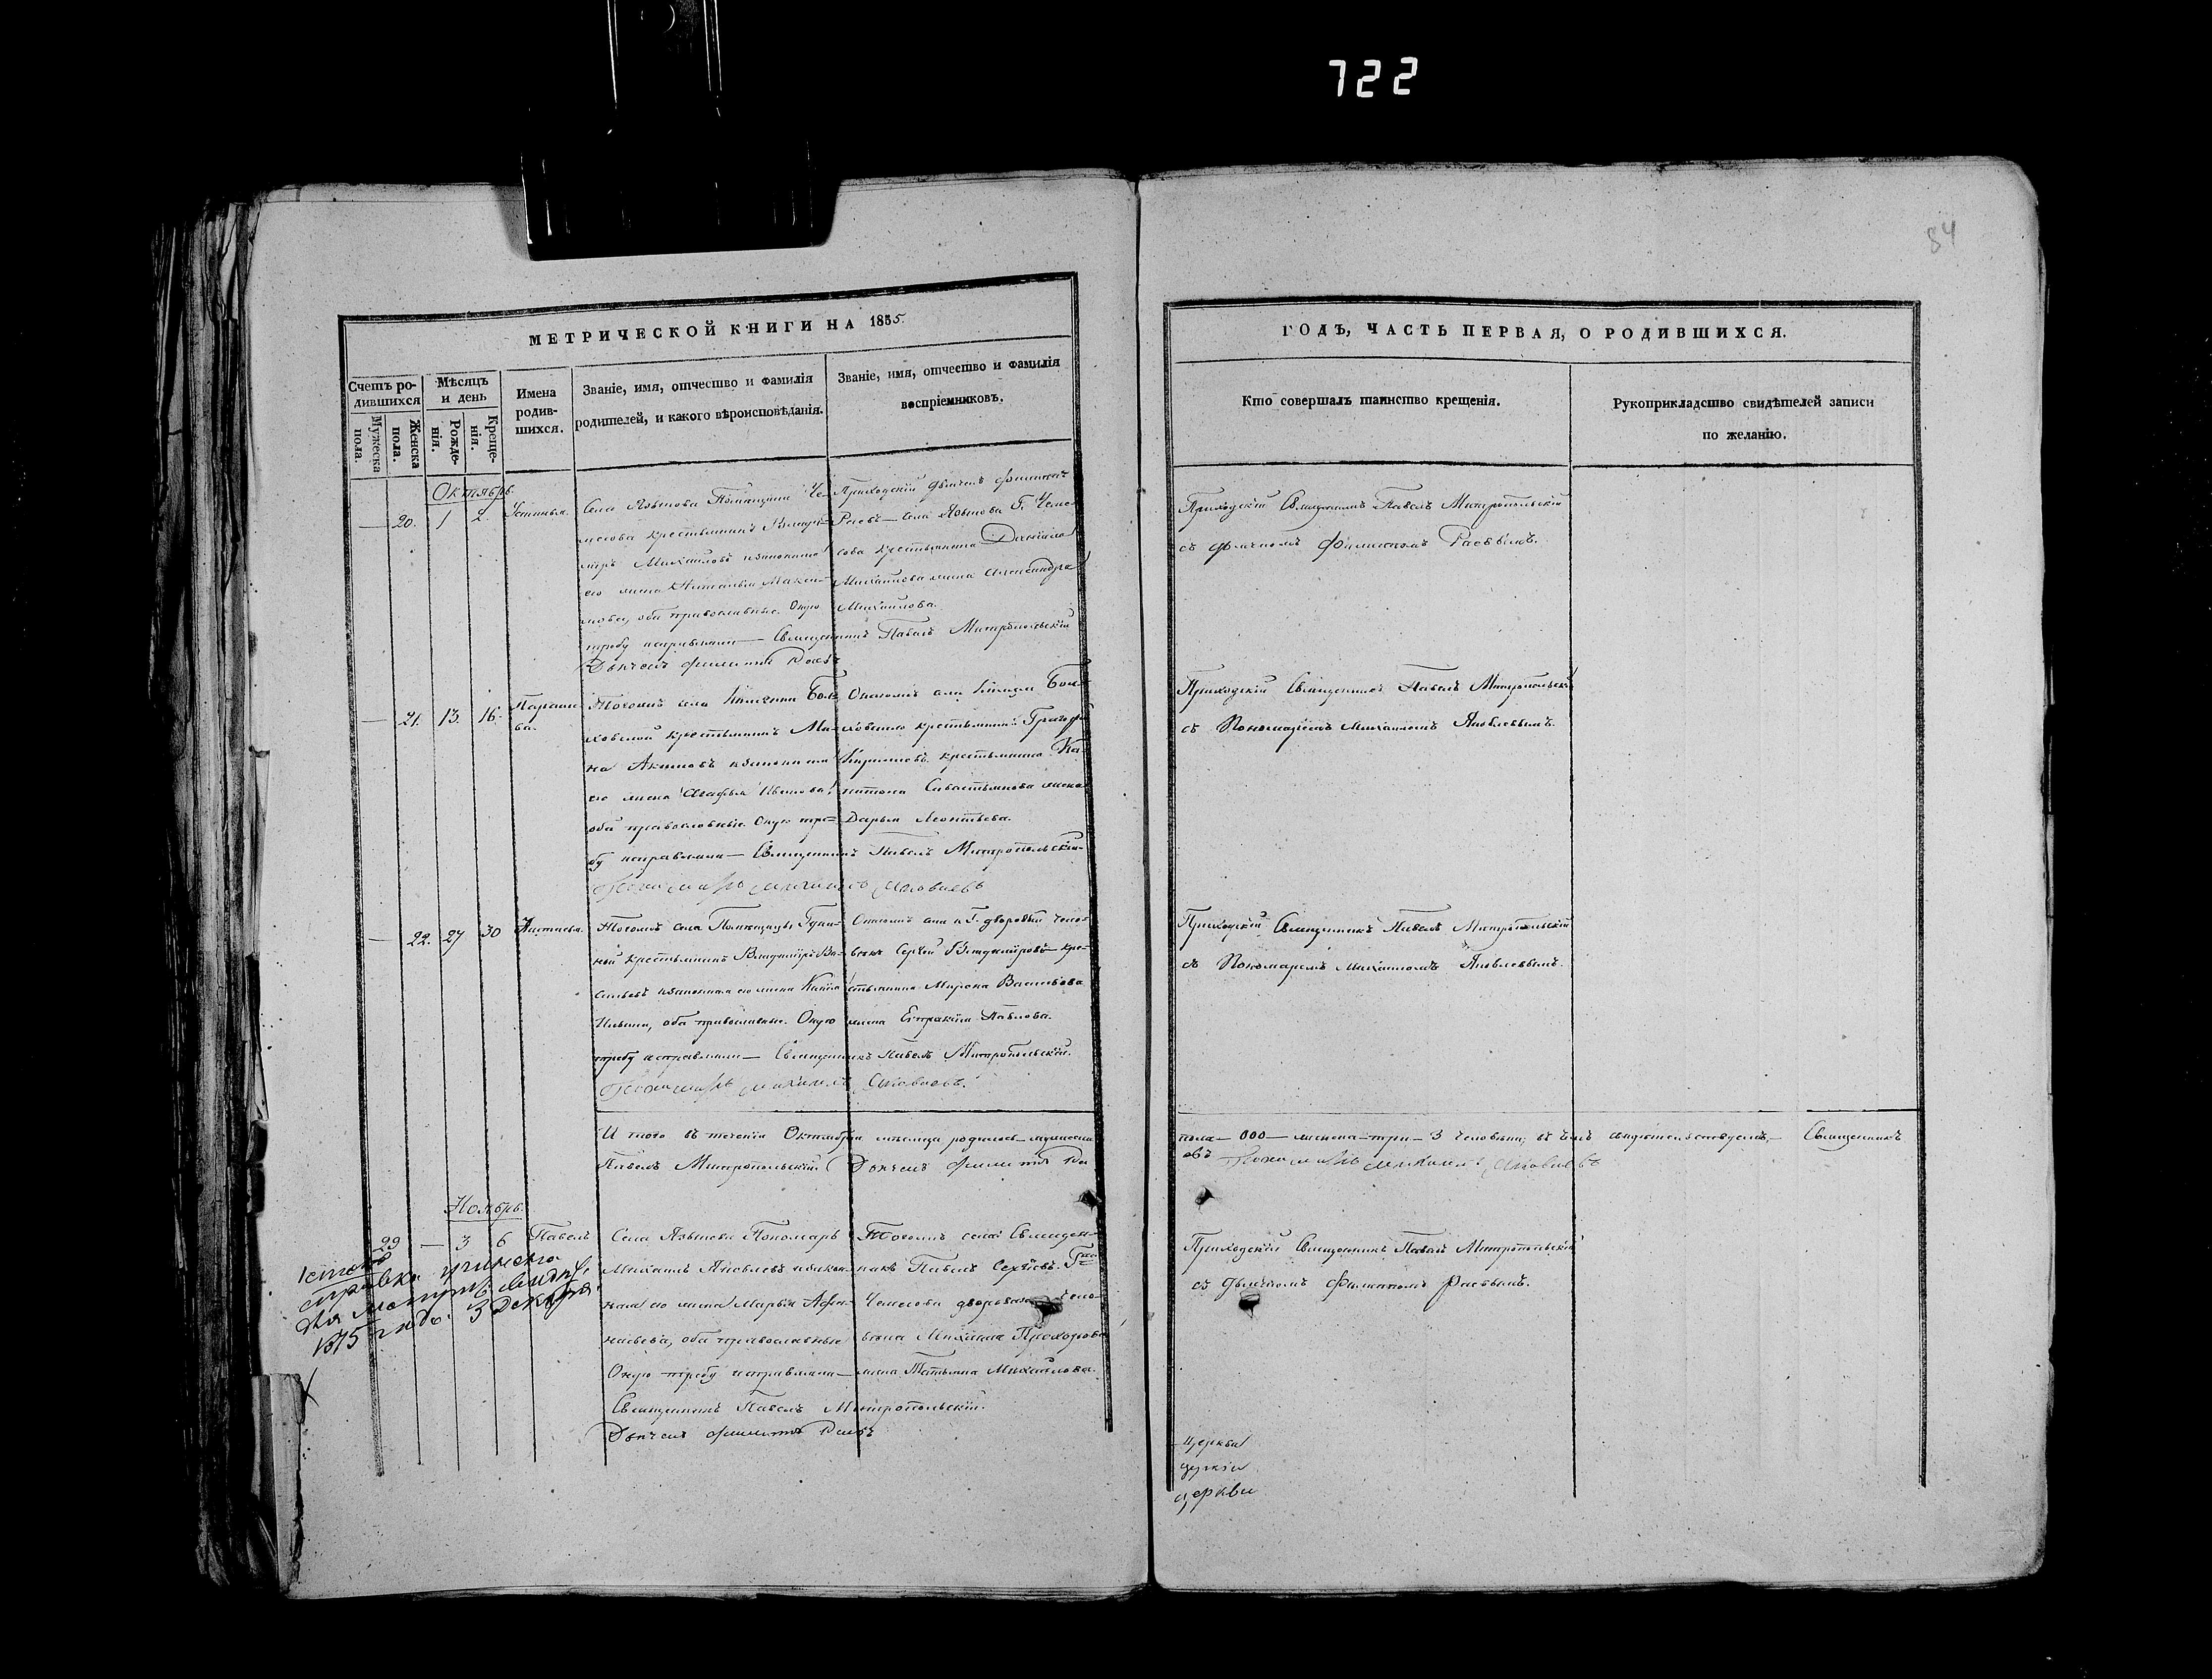 722
84
МЕТРИЧЕСКОЙ КНИГИ НА 1855
ГОДЪ, ЧАСТЬ ПЕРВАЯ, О РОДИВШИХСЯ.
Счетъ ро-
дившихся
Мужеска
пола.
Женска
пола.
Мѣсяцъ
и день
Рожде-
нія.
Креще-
нія.
Имена
родив-
шихся.
Званіе, имя, отчество и фамилія
родителей, и какого вѣроисповѣданія.
Званіе, имя, отчество и фамилія
воспріемниковъ.
Кто совершалъ таинство крещенія.
Рукоприкладство свидѣтелей записи
по желанію.
Октябрь.
— 20. 1 2. Устинья.
Села Языкова Помѣщика Че-
месова крестьянинъ
Михайловъ и законная
его жена Наталья Макси-
мова, оба православные. Оную
требу исправляли — Священникъ Павелъ Митропольскій
Дьячекъ Филиппъ Раевъ
Приходскій дьячекъ Филиппъ
Раевъ — села Языкова Г. Чеме-
сова крестьянина Даніила
Михайлова жена Александра
Михайлова.
Приходскій Священникъ Павелъ Митропольскій
съ дьячкомъ Филиппомъ Раевымъ.
— 21. 13. 16. Параске-
ва.
Тогожъ села Княгини Бол-
ховской крестьянинъ Ми-
на Акимовъ и законная
его жена Агафья Иванова,
оба православные. Оную тре-
бу исправляли — Священникъ Павелъ Митропольскій
Пономарь Михаилъ Яковлевъ
Онагожъ села Княгини Бол-
ховской крестьянинъ Григорій
Кирилловъ крестьянина Ка-
питона Савастьянова жена
Дарья Леонтьева.
Приходскій Священникъ Павелъ Митропольскій
съ Пономаремъ Михаиломъ Яковлевымъ.
— 22. 27 30 Настасья.
Тогожъ села Помѣщицы
крестьянинъ Владимиръ Ва-
сильевъ и законная его жена
Ильина, оба православные. Оную
требу исправляли — Священникъ Павелъ Митропольскій.
Пономарь Михаилъ Яковлевъ.
Онагожъ села и Г. дворовый чело-
вѣкъ Сергѣй Владимировъ кре-
стьянина Мирона Васильева
жена Евпраксія Павлова.
Приходскій Священникъ Павелъ Митропольскій
съ Пономаремъ Михаиломъ Яковлевымъ.
И того въ теченіи Октября мѣсяца родилось — мужеска
пола — 000 — женска — три — 3 человѣка; въ чемъ свидѣтельствуемъ, — Священникъ
Павелъ Митропольскій Дьячекъ Филиппъ Ра
евъ Пономарь Михаилъ Яковлевъ
Ноябрь.
29 — 3 6 Павелъ
Села Языкова Пономарь
Михаилъ Яковлевъ и закон-
ная его жена Марья Афа-
насьева, оба православные
Оную требу исправляли —
Священникъ Павелъ Митропольскій.
Дьячекъ Филиппъ Раевъ
Тогожъ села Священ-
никъ Павелъ Сергѣевъ. Г-на
Чемесова двороваго чело-
вѣка Михаила Прохорова
жена Татьяна Михайлова.
Приходскій Священникъ Павелъ Митропольскій
съ дьячкомъ Филиппомъ Раевымъ.
справка учинена
для
1875 года. 3 декабря.
Церкви
церкви
церкви